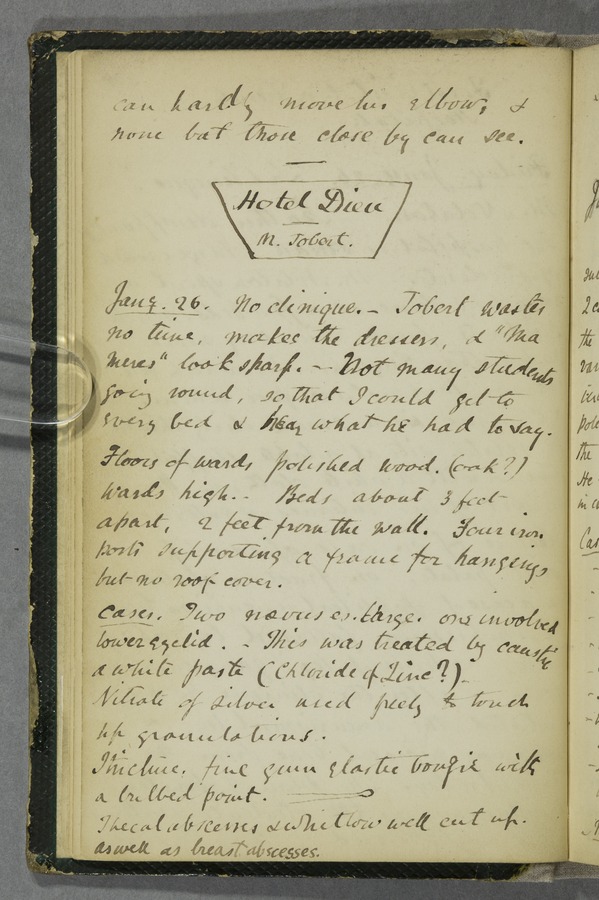 can hardly move his elbow, &
none but those close by can see.
Hotel Dieu
M. Jobert.
Jany. 26. No clinique. - Jobert wastes
no time, makes the dressers, & "Ma
meres" look sharp. - Not many students
going round, so that I could get to
every bed & hear what he had to say.
Floors of wards polished wood. (oak?)
Wards high. - Beds about 3 feet
apart, 2 feet from the wall. Four iron
posts supporting a frame for hangings
but no roof cover.
Cases. Two nævuses. Large. one involved
lower eyelid. - This was treated by caustic
a white paste (Chloride of Zinc?) -
Nitrate of silver used freely to touch
up granulations.
Stricture. fine gum elastic bougie with
a bulbed point.
Thecal abscesses & whitlow well cut up.
as well as breast abscesses.